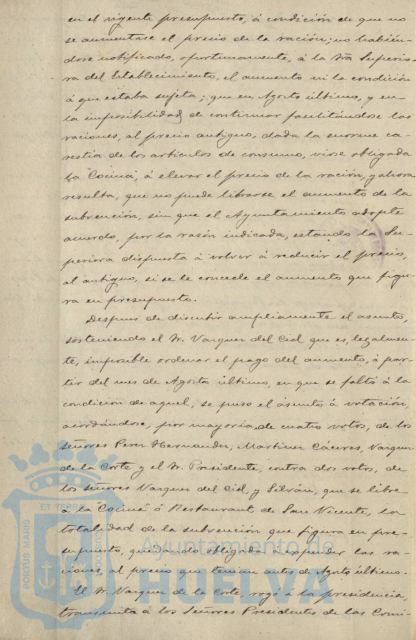 en el vigente presupuesto, á condición de que no
se aumentase el precio de la ración; no habién-
dose notificado, oportunamente, á la Sra Superio-
ra del Establecimiento, el aumento ni la condición
á que estaba sujeta; que en Agosto último, y en
la imposibilidad de continuar facilitándose las
raciones, al precio antiguo, dada la enorme ca-
restia de los articulos de consumo, viose obligada
la Cocina, á elevar el precio de la ración, y ahora
resulta, que no puede librarse el aumento de la
subvención, sin que el Ayuntamiento adopte
acuerdo, por la razón indicada, estando la Su-
periora dispuesta á volver á reducir el precio,
al antiguo, si se le concede el aumento que figu-
ra en presupuesto.
Despues de discutir ampliamente el asunto,
sosteniendo el Sr. Vazquez del Cid que es, legalmen-
te, imposible ordenar el pago del aumento, á par-
tir del mes de Agosto último, en que se faltó á la
condición de aquel, se puso el asunto á votación,
acordándose, por mayoría de cuatro votos, de los
señores Perez Hernandez, Martinez Cáceres, Vazquez
de la Corte y el Sr. Presidente, contra dos votos, de
los señores Vazquez del Cid, y Silván, que se libre
á la Cocina ó Restaurant de San Vicente, la
totalidad de la subvención que figura en pre-
supuesto, quedando obligada á expender las ra-
ciones, al precio que tenian antes de Agosto último.
El Sr. Vazquez de la Corte, rogó á la presidencia,
transmita á los Señores Presidentes de las Comi-
PORTUS MARIS ET TERRAE
Ayuntamiento de
HUELVA